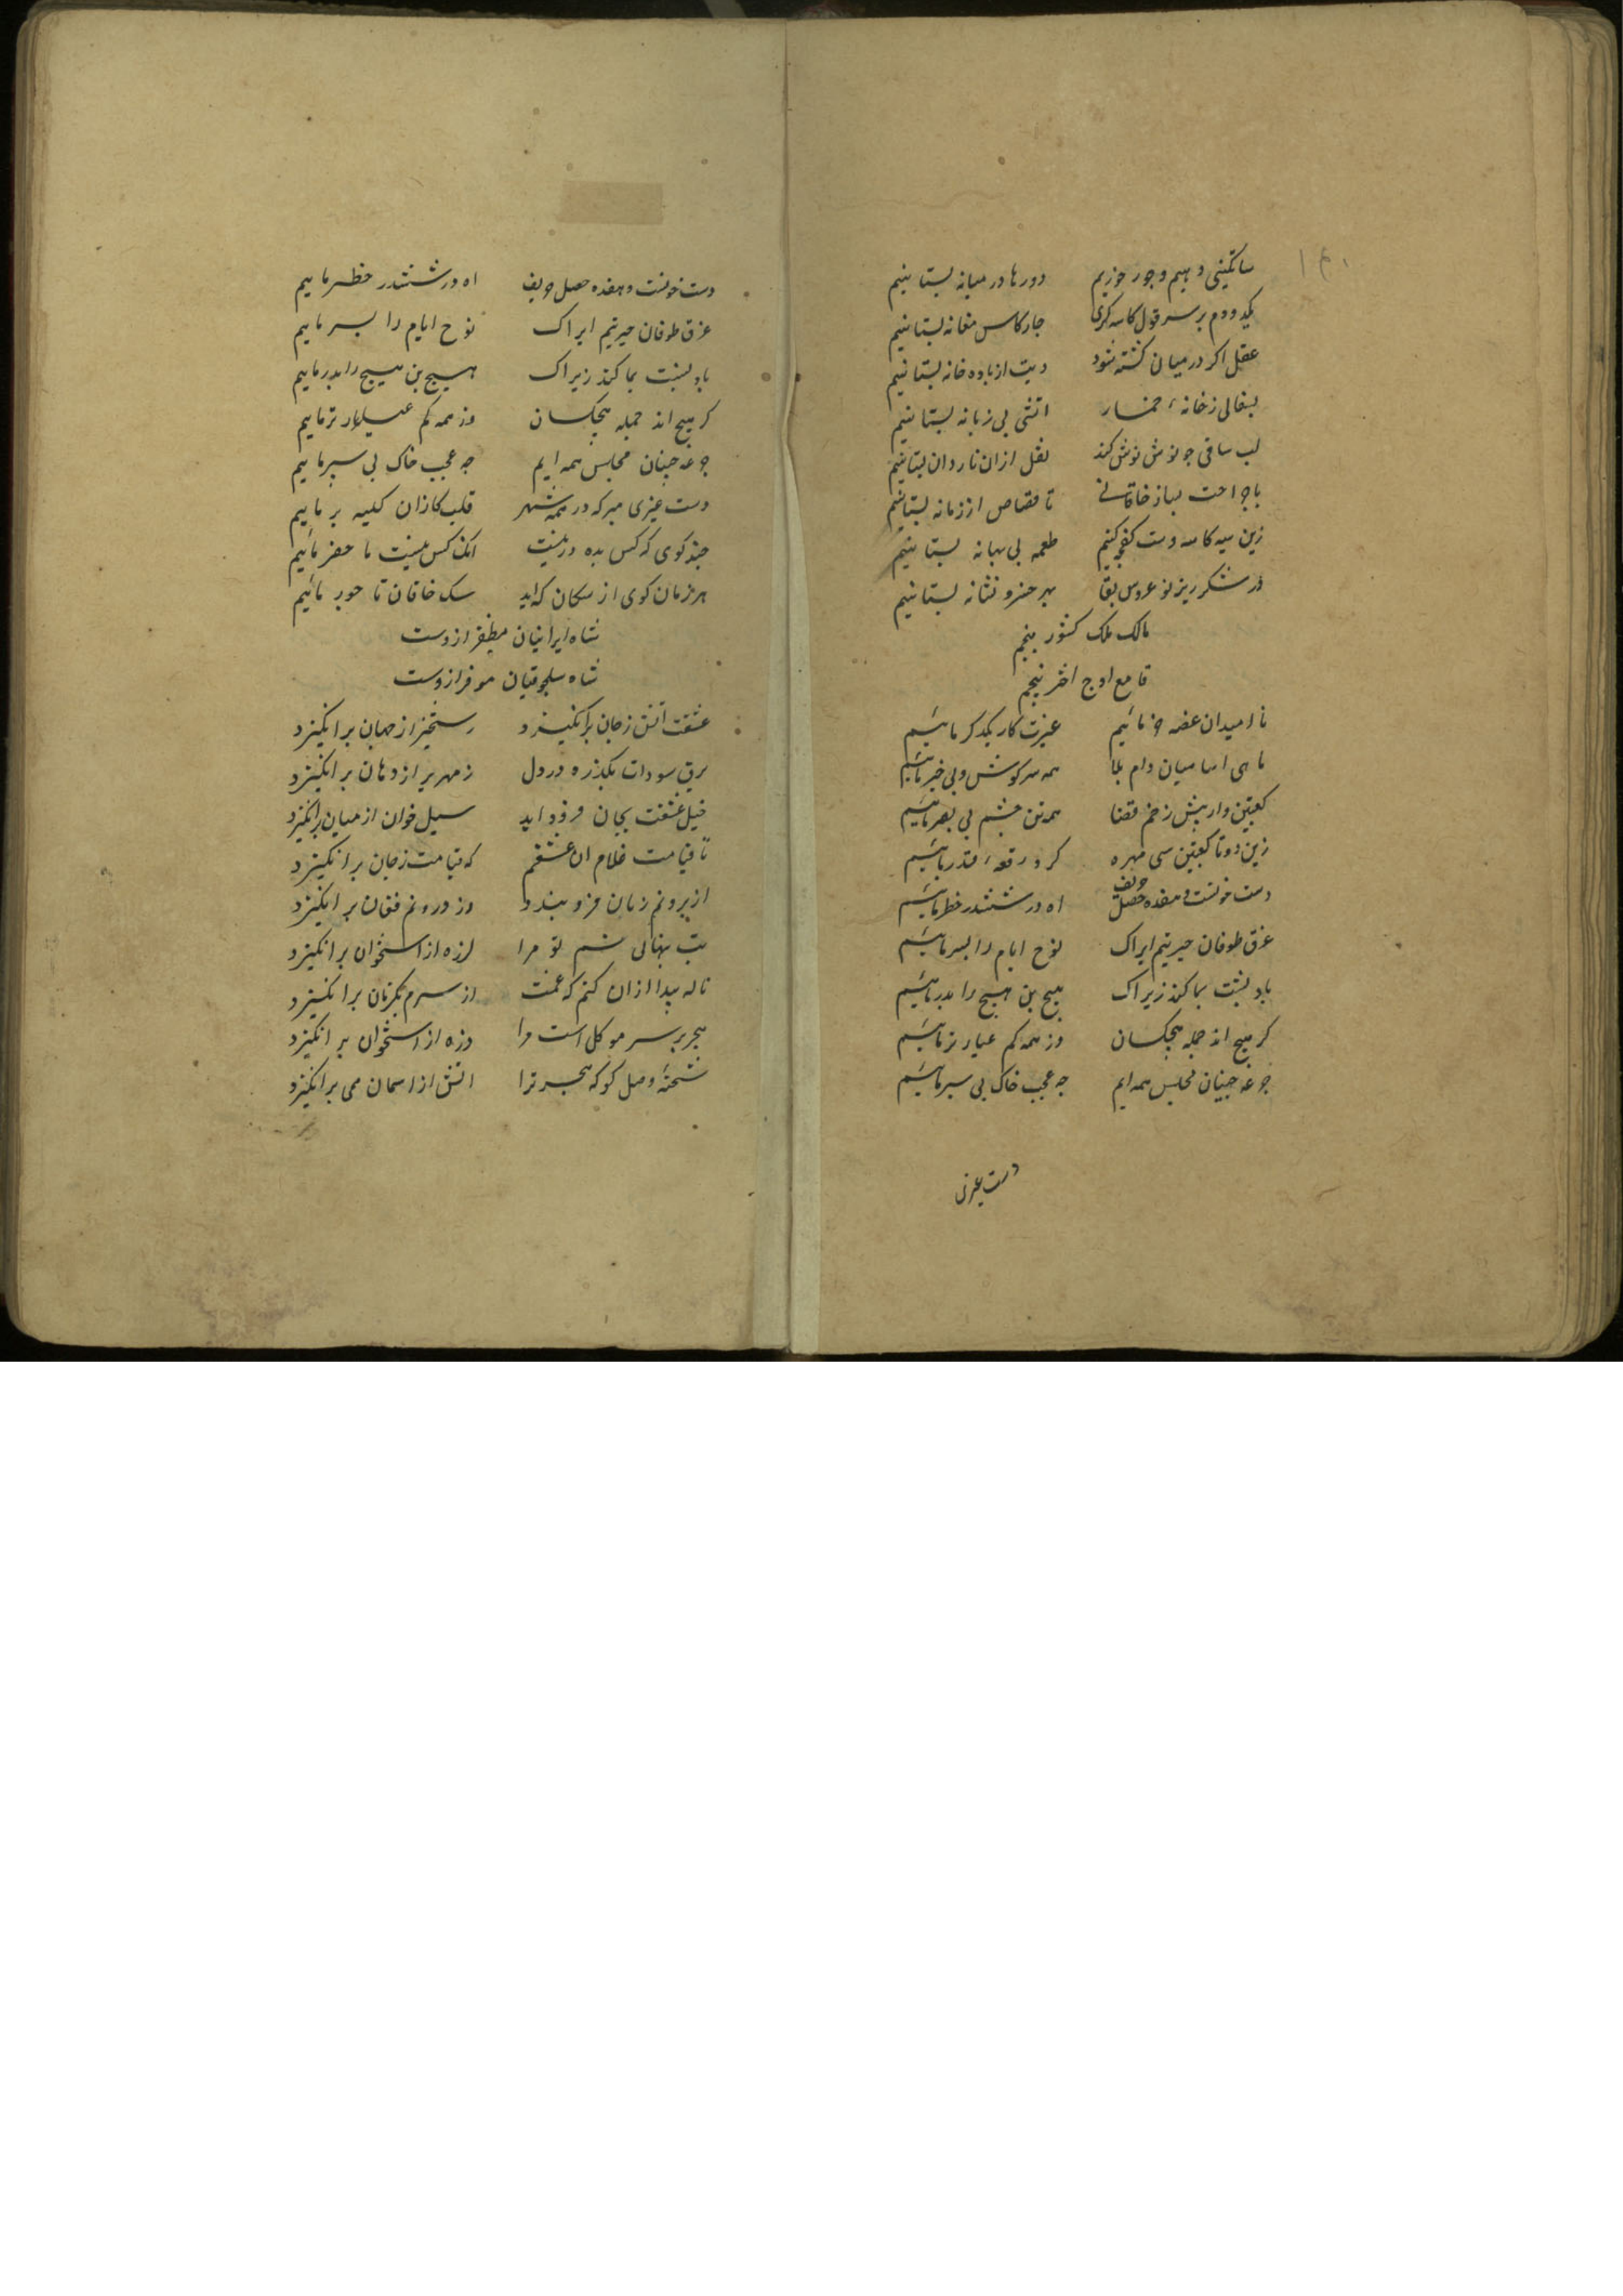 ۱۴۰
ساتگینی دهیم وجور خوریم دورها در میانه بستانیم
یکدودم بر سر قول کاسه کری چارکاس مغانه بستانیم
عقل اکر در میان کشته شود دیت از باده خانه بستانیم
بسفالی زخانهٔ خمار اتشی بی زبانه بستانیم
لب ساقی چو نوش نوش کند نقل ازان ناردان بستانیم
با جراحت بساز خاقانی تا قصاص از زمانه بستانیم
زین سیه کاسه دست کفچه کنیم طعمه بی بهانه بستانیم
در شکر ریز نو عروس بقا بهر خسرو نشانه بستانیم
مالک ملک کشور پنجم
قامع اوج اختر پنجم
نا امیدان غصه خور مائیم عبرت کار یکدکر مائیم
ماهی اسا میان دام بلا همه سر کوش وبی خبر مائیم
کعبتین وار پیش زخم قضا همه تن چشم بی بصر مائیم
زین دوتا کعبتین سی مهره کرو رقعهٔ قدر مائیم
دست خونست و هفده خصل حریف اه در ششدر خطر مائیم
غرق طوفان حیرتیم ایراک نوح ایام را بسر مائیم
باد نسبت بما کند زیراک هیچ بن هیچ را پدر مائیم
کر هیچ اند جمله هیچکسان وز همه کم عیارتر مائیم
جرعه چینان مجلس همه ایم چه عجب خاک پی سپر مائیم
دست عزی
دست خونست و هفده خصل حریف اه در ششدر خطر ماییم
غرق طوفان حیرتیم ایراک نوح ایام را بسر ماییم
باد نسبت بما کند زیراک هیچ بن هیچ را پدر ماییم
کر هیچ اند جمله هیچکسان وز همه کم عیارتر ماییم
جرعه چینان مجلس همه ایم چه عجب خاک پی سپر ماییم
دست غیری مبر که در همه شهر قلب کاران کلیه بر ماییم
چند کوی که کس بده در نیست انک کس نیست ما حضر مائیم
هر زمان کوی از سکان که اید سک خاقان تاجور مائیم
شاه ایرانیان مظفر ازوست
شاه سلجوقیان موفر ازوست
عشقت اتش زجان برانکیزد رستخیز از جهان برانکیزد
برق سودات بکذرد در دل زمهریر از دهان برانکیزد
خیل عشقت بجان فرود اید سیل خوان از میان برانکیزد
تا قیامت غلام ان عشقم که قیامت زجان برانکیزد
از برونم زبان فرو بندد وز درونم فغان برانکیزد
تب پنهانی شم تو مرا لرزه از استخوان برانکیزد
ناله پیدا ازان کنم که غمت از سرم بکزنان برانکیزد
هجر بر سر موکل است مرا دزه از استخوان برانکیزد
شحنهٔ وصل کو که هجر ترا اتش از اسمان می برانکیزد